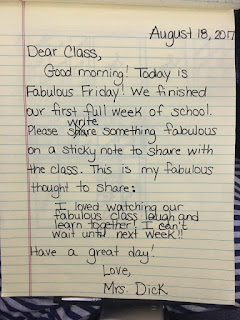 August 18, 2017
Dear Class,
Good morning! Today is
Fabulous Friday! We finished
our first full week of school.
write
Please share something fabulous
on a sticky note to share with
the class. This is my fabulous
thought to share:
I loved watching our
fabulous class laugh and
learn together! I can't
wait until next week!!
Have a great day!
Love,
Mrs. Dick